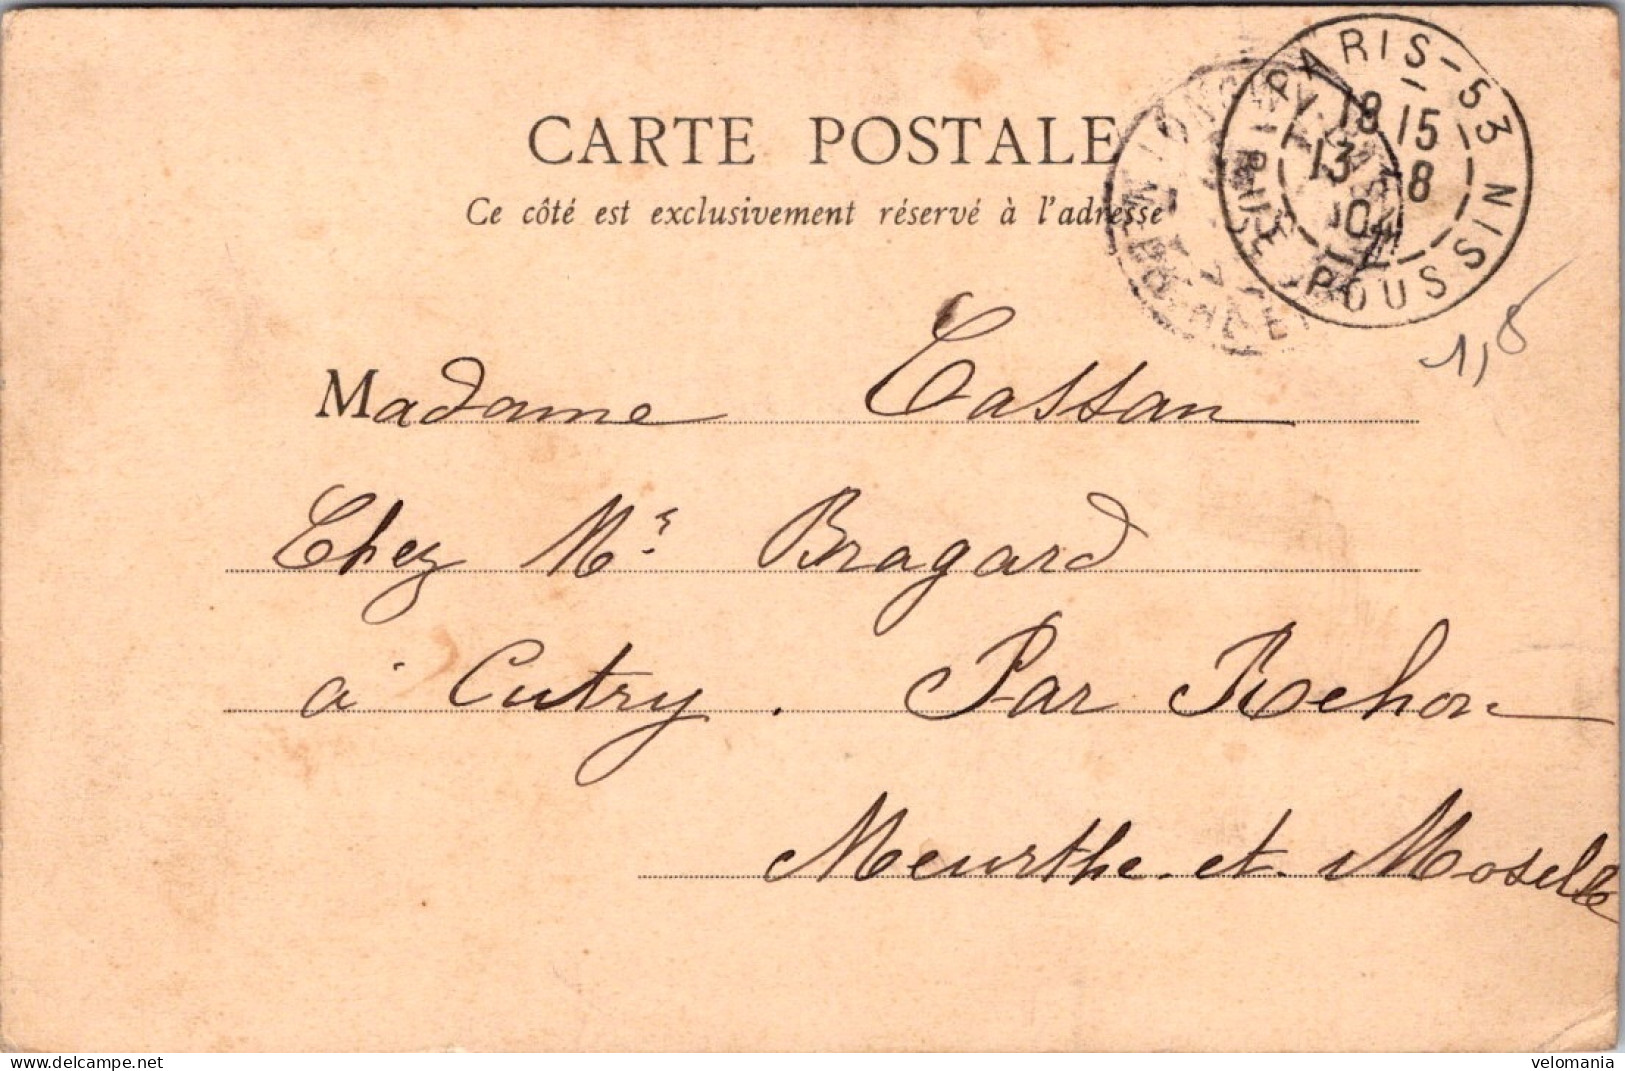 CARTE POSTALE
Ce côté est exclusivement réservé à l'adresse
PARIS - 53 NIS POUSSIN
18 15
13 8
04
1,8
Madame Cassan
Chez Mr. Bragard
à Cutry. Par Rehon
Meurthe-et-Moselle
delcampe.net
velomania